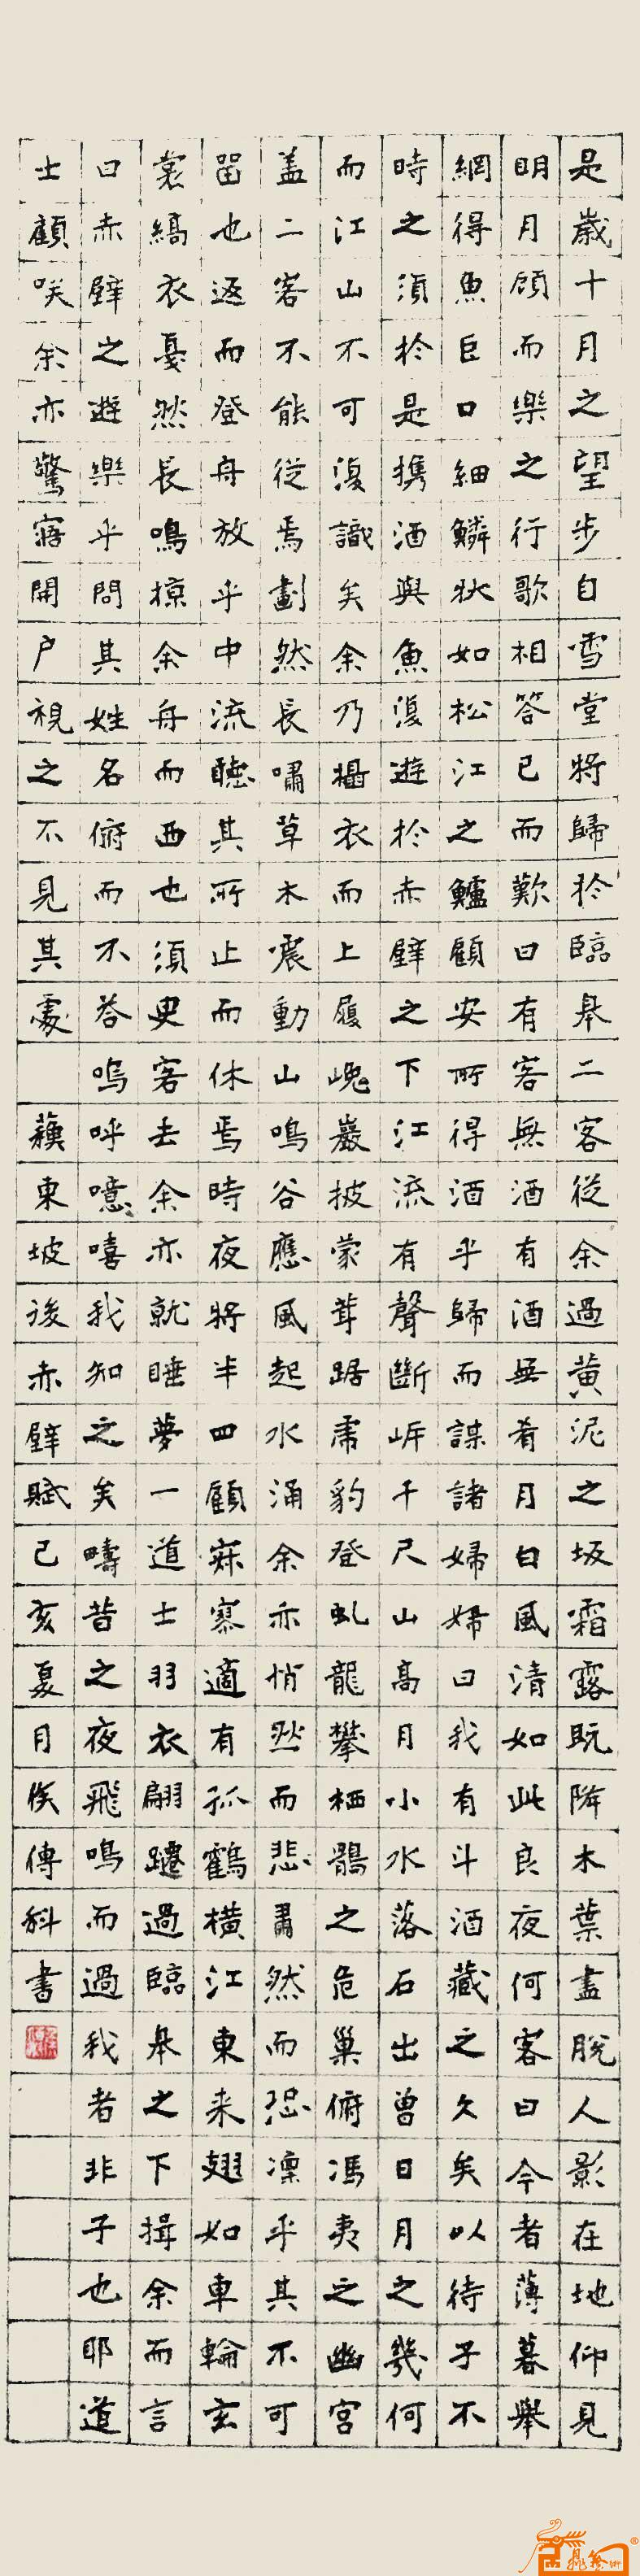 是歲十月之望步自雪堂將歸於臨皋二客從余過黃泥之坂霜露既降木葉盡脫人影在地仰見
明月顧而樂之行歌相答已而歎曰有客無酒有酒無肴月白風清如此良夜何客曰今者薄暮舉
網得魚巨口細鱗狀如松江之鱸顧安所得酒乎歸而謀諸婦婦曰我有斗酒藏之久矣以待子不
時之須於是携酒與魚復遊於赤壁之下江流有聲斷岸千尺山高月小水落石出曾日月之幾何
而江山不可復識矣余乃攝衣而上履巉巖披蒙茸踞虎豹登虬龍攀栖鶻之危巢俯馮夷之幽宮
盖二客不能從焉劃然長嘯草木震動山鳴谷應風起水涌余亦悄然而悲肅然而恐凜乎其不可
留也返而登舟放乎中流聽其所止而休焉時夜將半四顧寂寥適有孤鶴橫江東来翅如車輪玄
裳縞衣戛然長鳴掠余舟而西也須臾客去余亦就睡夢一道士羽衣翩躚過臨皋之下揖余而言
曰赤壁之遊樂乎問其姓名俯而不答嗚呼噫嘻我知之矣疇昔之夜飛鳴而過我者非子也耶道
士顧咲余亦驚寤開戶視之不見其處 蘇東坡後赤壁賦己亥夏月侯傳科書